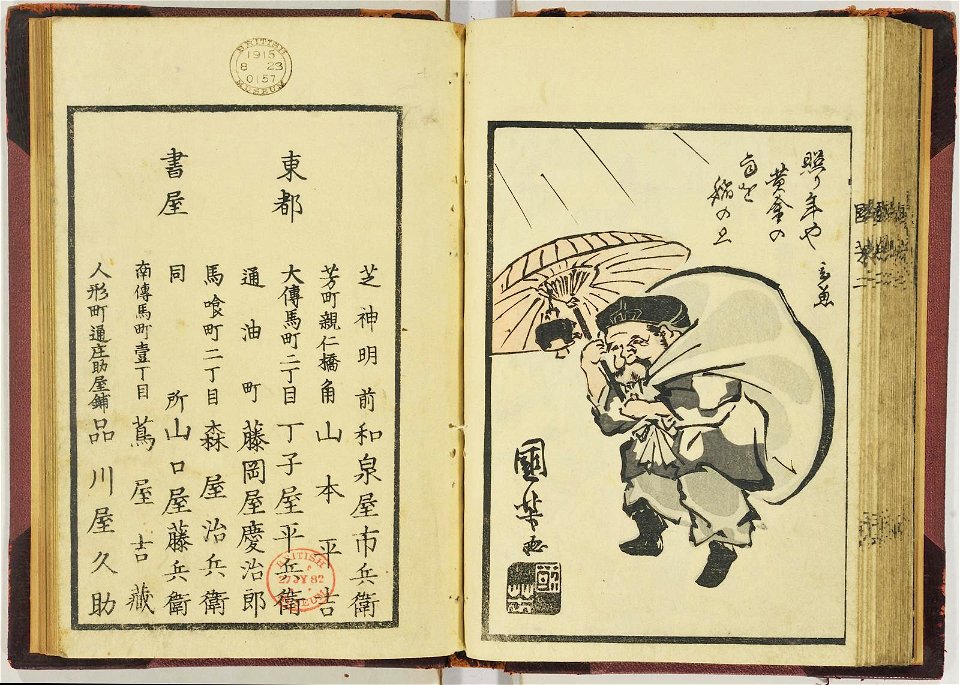 年や
黄金の
稲の上
國芳画
東都
書屋
芝神明前 和泉屋市兵衛
芳町親仁橋角 山本平吉
大傳馬町二丁目 丁子屋平兵衛
通油町 藤岡屋慶治郎
馬喰町二丁目 森屋治兵衛
同所 山口屋藤兵衛
南傳馬町壹丁目 蔦屋吉藏
人形町通庄助屋鋪 品川屋久助
BRITISH
1915
8 23
0157
MUSEUM
BRITISH
27 JY 82
MUSEUM